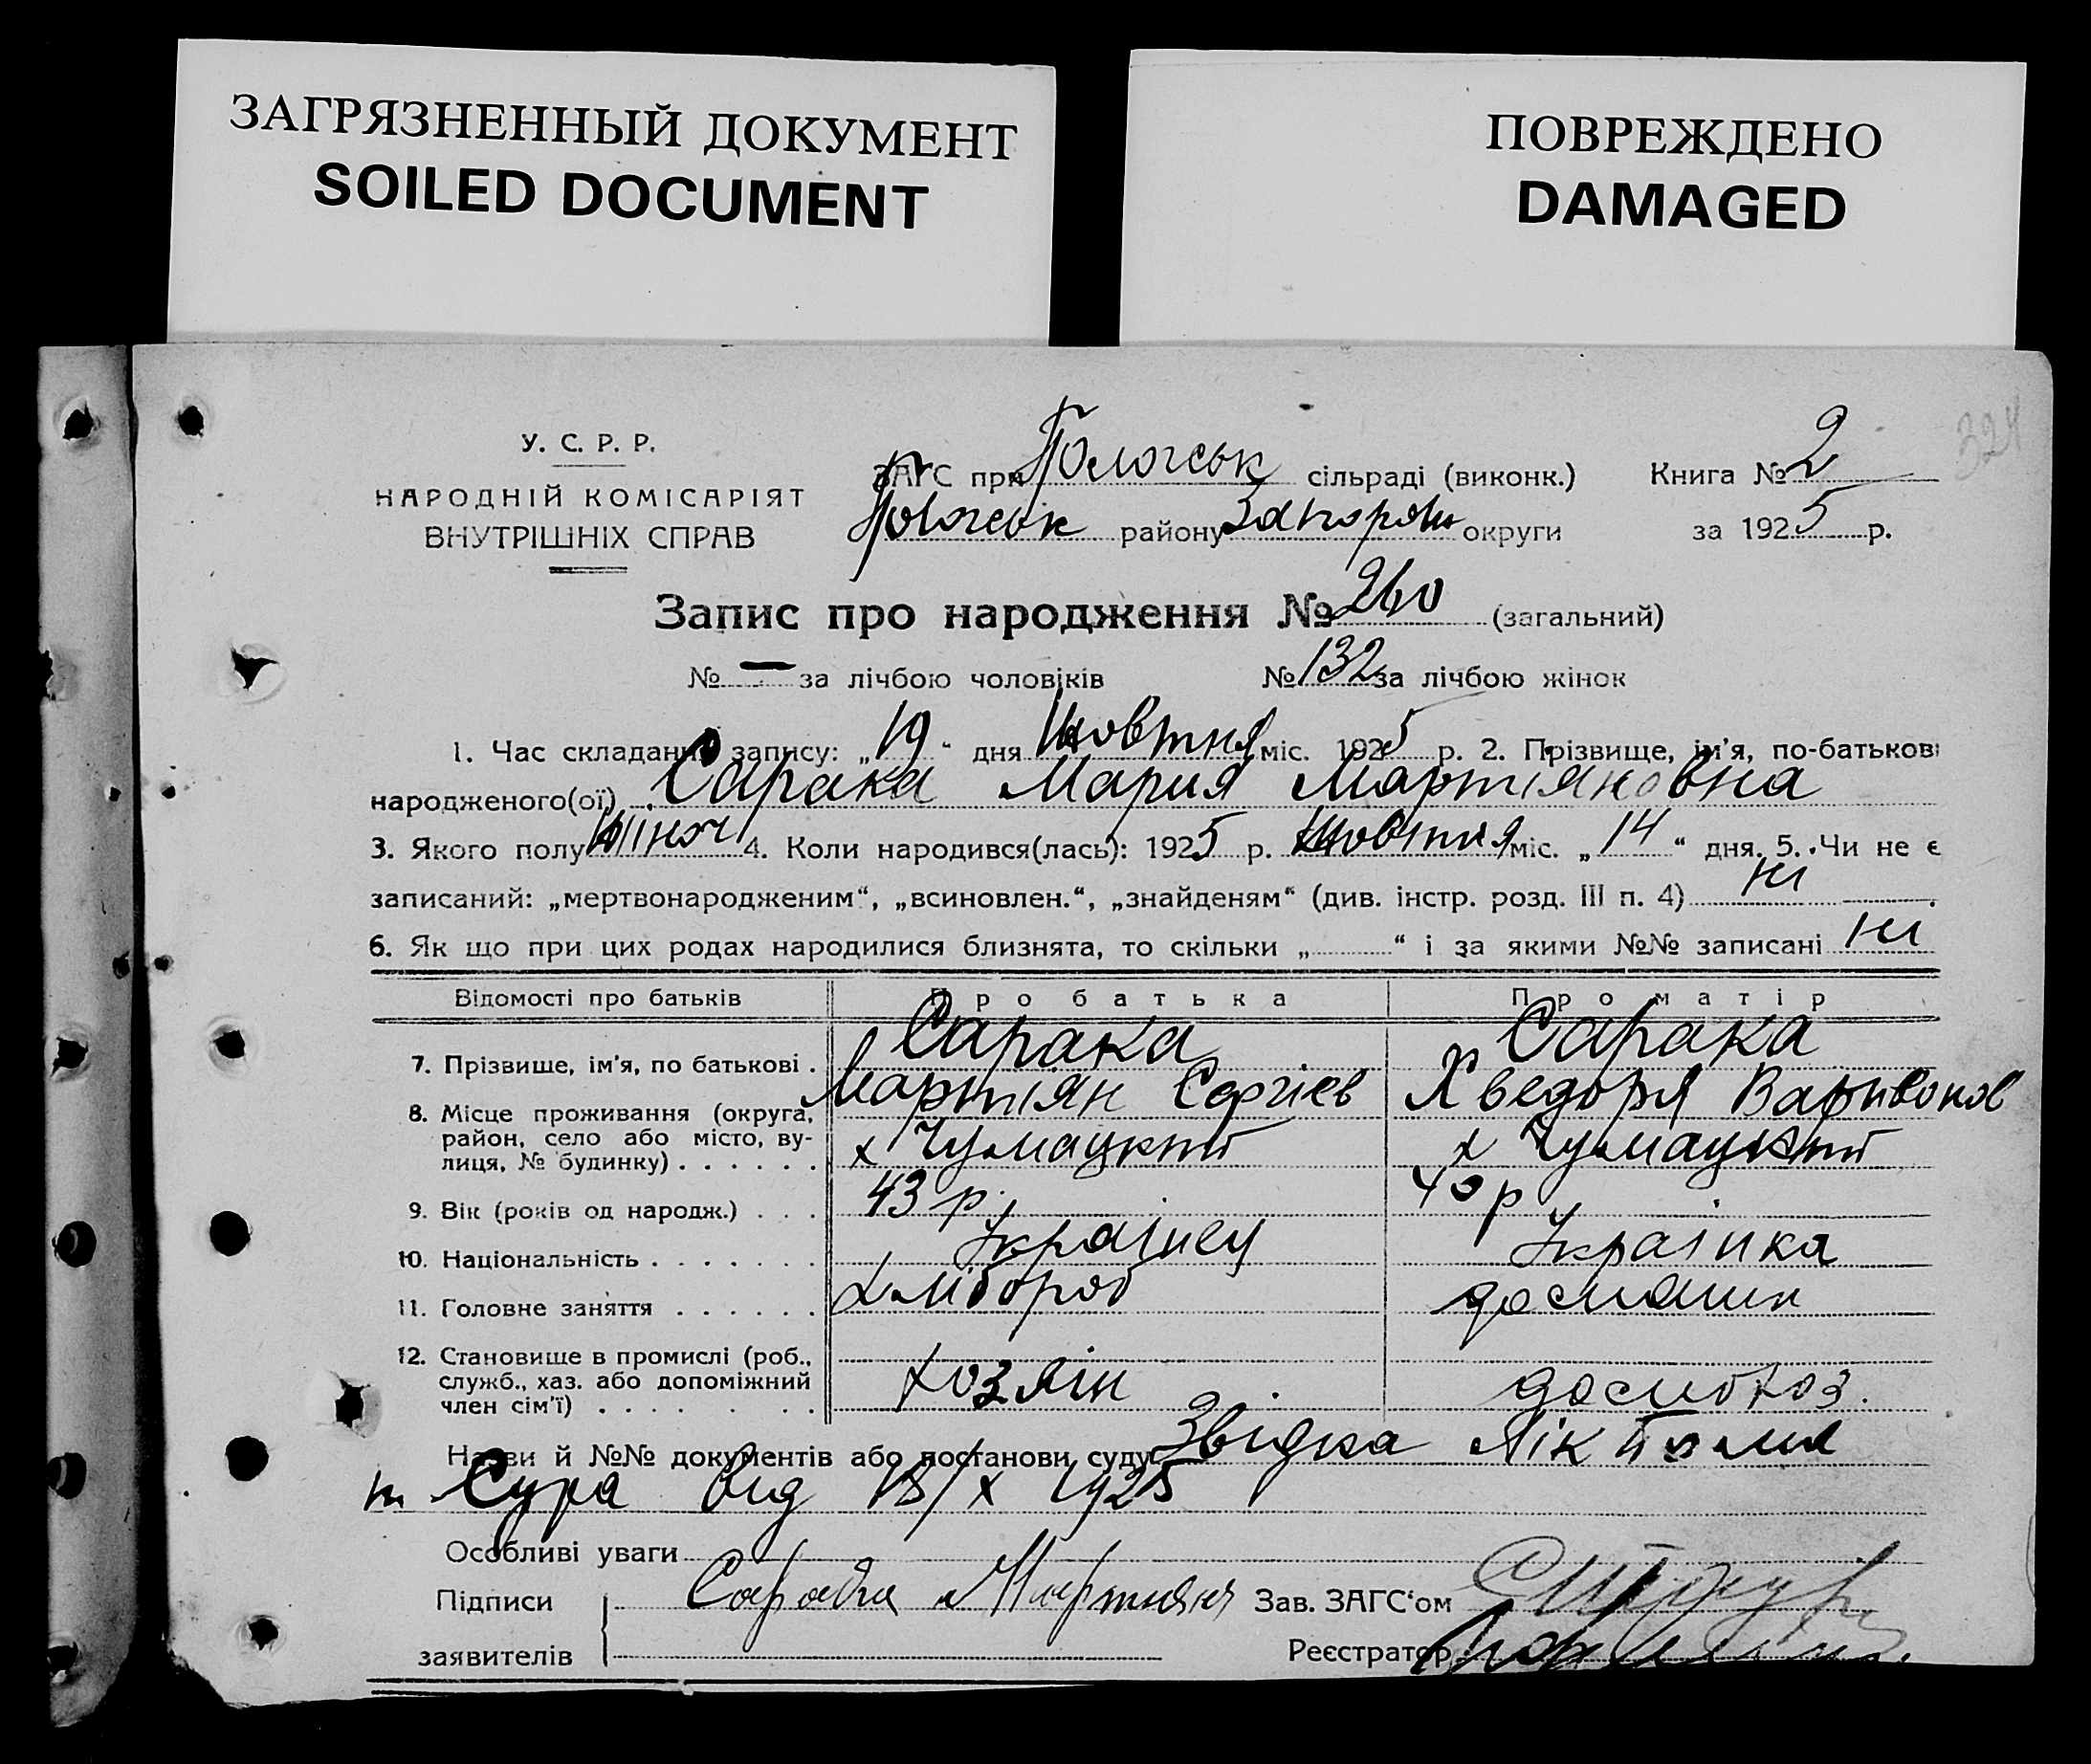 ЗАГРЯЗНЕННЫЙ ДОКУМЕНТ
SOILED DOCUMENT
ПОВРЕЖДЕНО
DAMAGED
324
У. С. Р. Р.
НАРОДНІЙ КОМІСАРІЯТ
ВНУТРІШНІХ СПРАВ
ЗАГС при Пологськ сільраді (виконк.) Книга № 2
Пологськ району Запорож округи за 1925 р.
Запис про народження № 260 (загальний)
№ — за лічбою чоловіків № 132 за лічбою жінок
1. Час складання запису: „19“ дня Жовтня міс. 1925 р. 2. Прізвище, ім'я, по-батькові
народженого(ої) Сарака Мария Мартіяновна
3. Якого полу жіноч 4. Коли народився(лась): 1925 р. Жовтня міс. „14“ дня. 5. Чи не є
записаний: „мертвонародженим“, „всиновлен.“, „знайденям“ (див. інстр. розд. III п. 4) ні
6. Як що при цих родах народилися близнята, то скільки „ “ і за якими №№ записані ні
Відомості про батьків Про батька Про матір
7. Прізвище, ім'я, по батькові . Сарака Мартіян Сергієв Сарака Хведоря Варивонов
8. Місце проживання (округа, район, село або місто, вулиця, № будинку) . . . . . . х Чумацкий х Чумацкий
9. Вік (років од народж.) . . . 43 р. 40 р
10. Національність . . . . . . . Українец Українка
11. Головне заняття . . . . . . хлібороб домашн
12. Становище в промислі (роб., служб., хаз. або допоміжний член сім'ї) . . . . . . . хозяін
Назви й №№ документів або постанови суду Звідка Лік
Сура від 18/X 1925
Особливі уваги
Підписи Сарака Мартиян Зав. ЗАГС'ом
заявителів Реєстратор